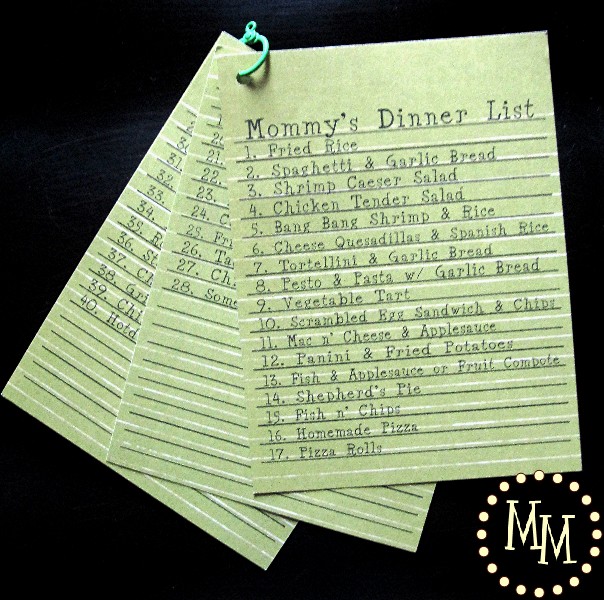 Mommy's Dinner List
1. Fried Rice
2. Spaghetti & Garlic Bread
3. Shrimp Caeser Salad
4. Chicken Tender Salad
5. Bang Bang Shrimp & Rice
6. Cheese Quesadillas & Spanish Rice
7. Tortellini & Garlic Bread
8. Pesto & Pasta w/ Garlic Bread
9. Vegetable Tart
10. Scrambled Egg Sandwich & Chips
11. Mac n' Cheese & Applesauce
12. Panini & Fried Potatoes
13. Fish & Applesauce or Fruit Compote
14. Shepherd's Pie
15. Fish n' Chips
16. Homemade Pizza
17. Pizza Rolls
21.
22.
23.
24. C
25. Fri
26. Ta
27. Ch
28. Some
32.
33.
34.
35. R
36. S
37. Ch
38. Gri
39. Chi
40. Hotd
MM